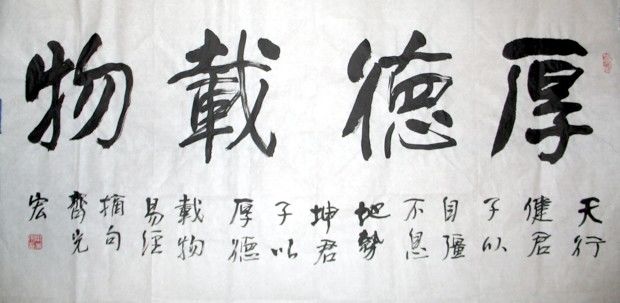 厚德載物
天行
健君
子以
自彊
不息
地勢
坤君
子以
厚德
載物
易經
摘句
齊光
宏